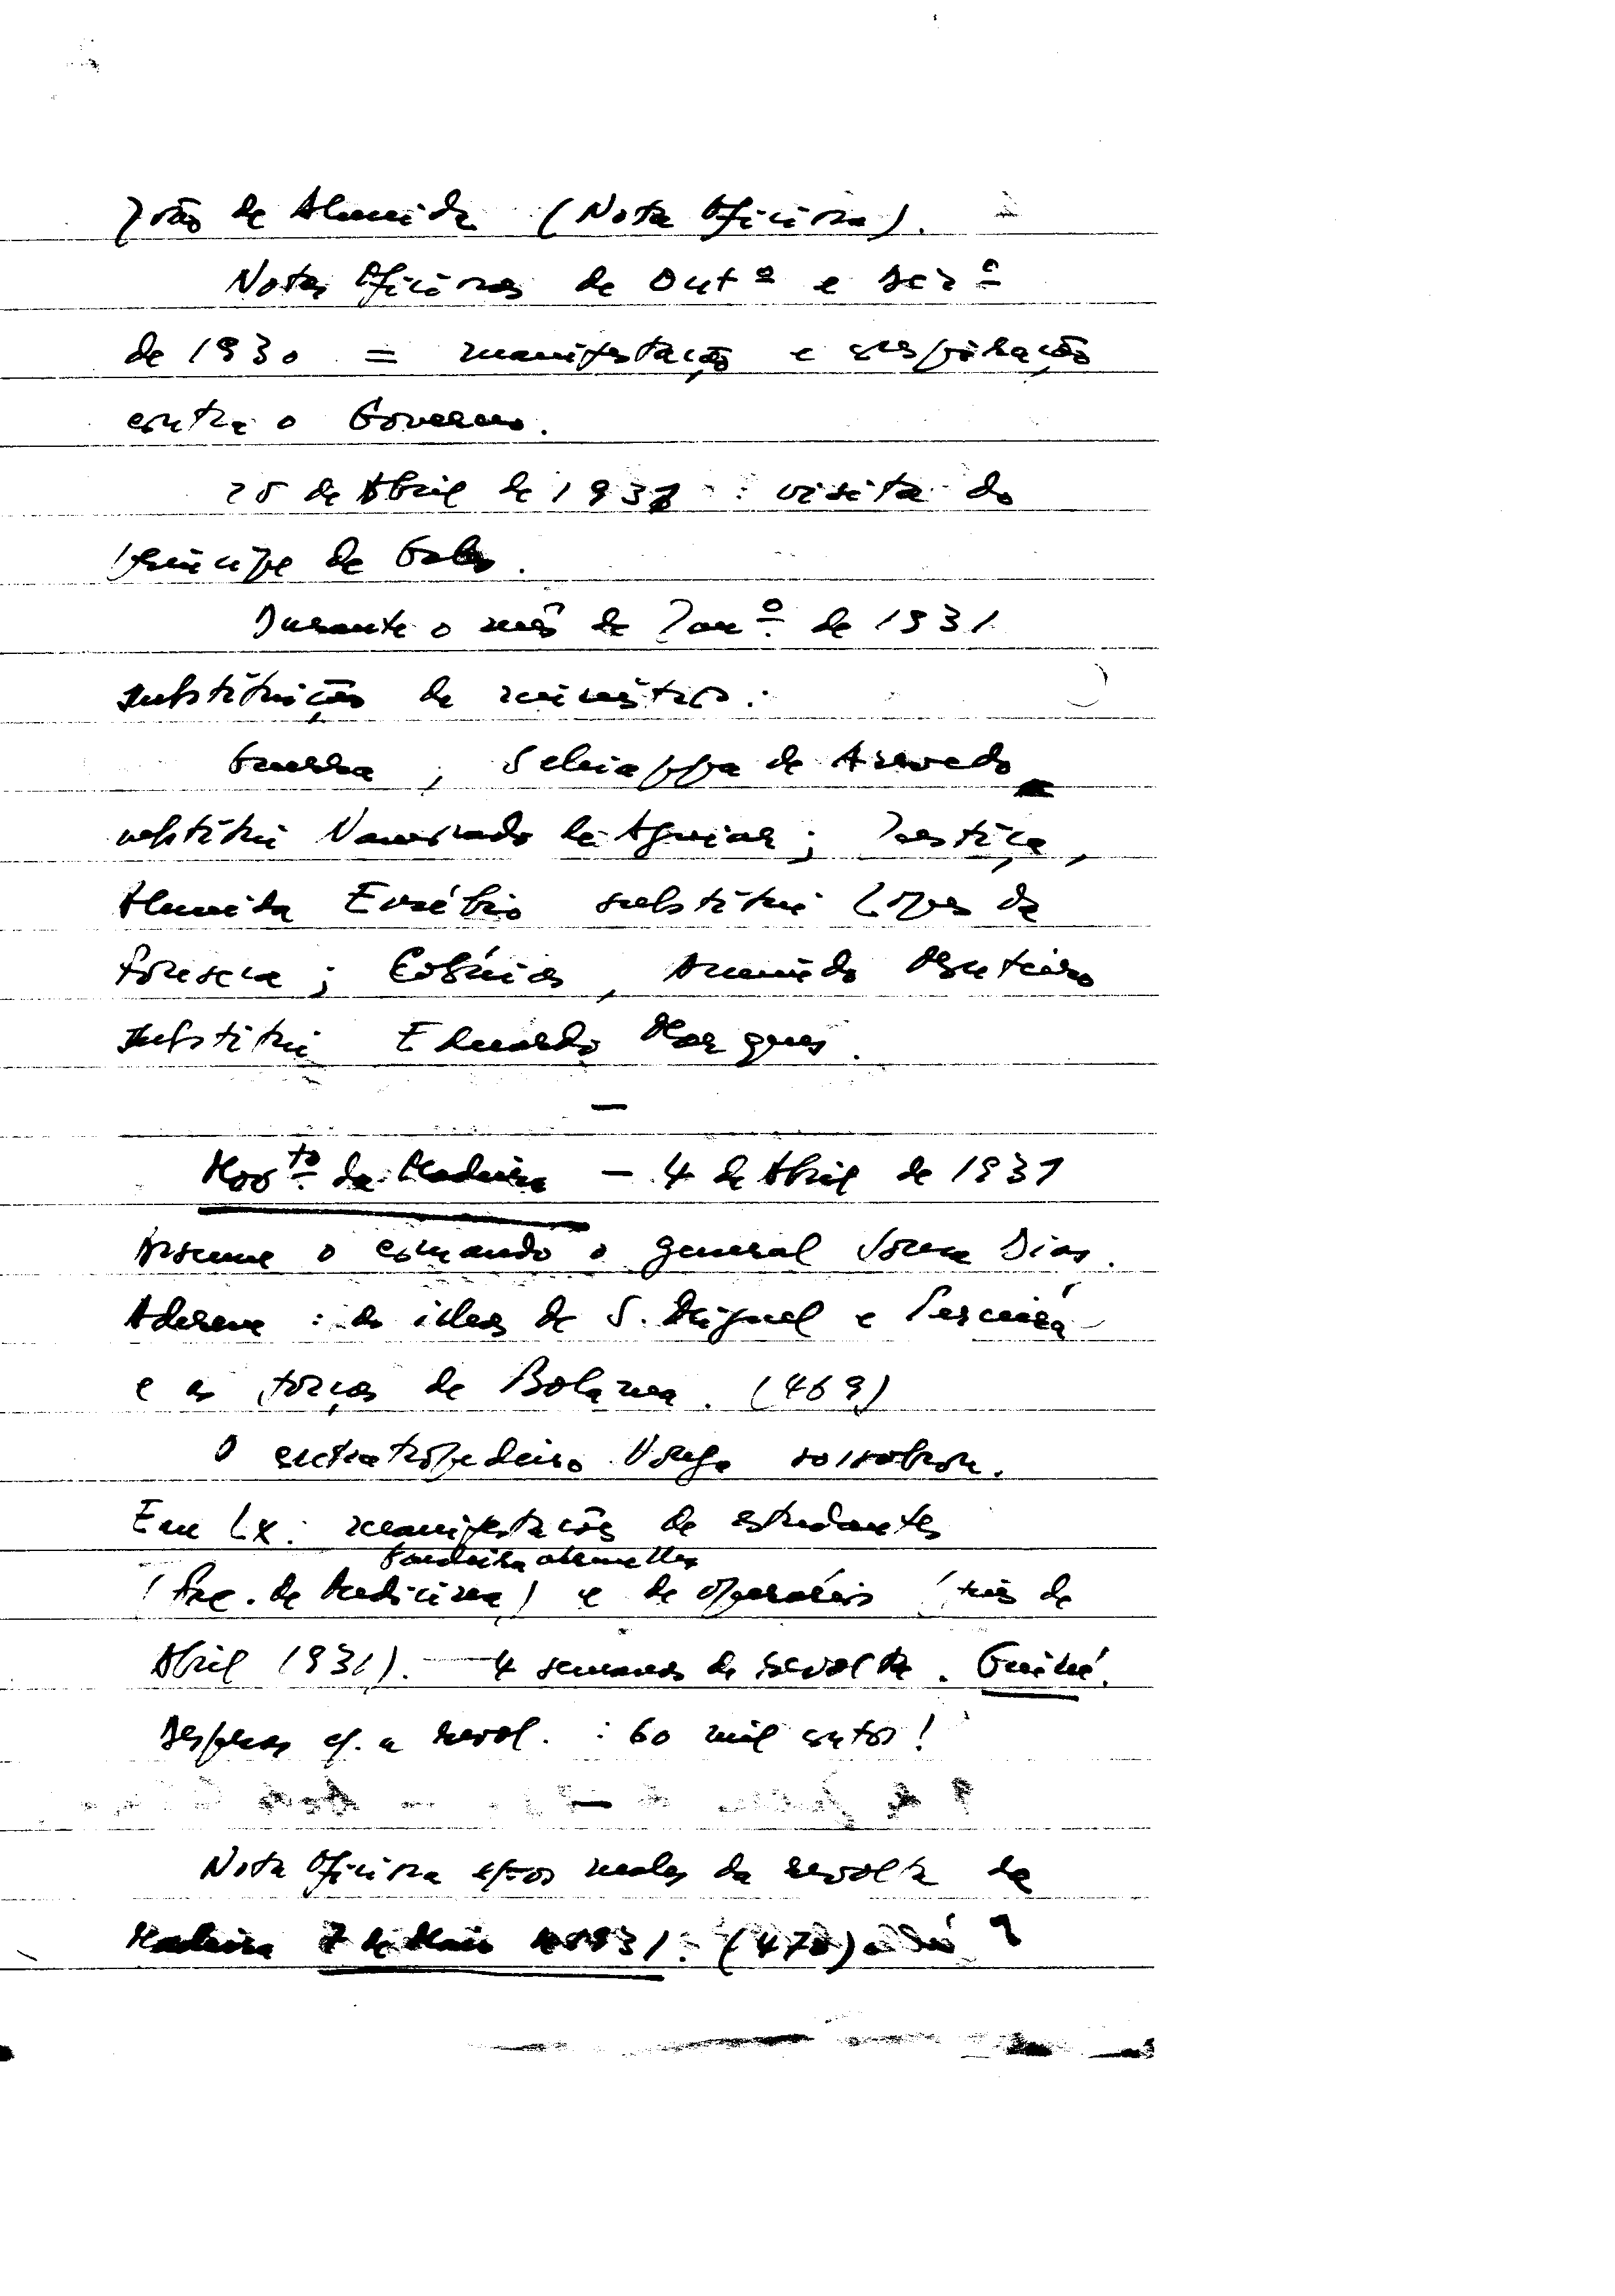 João de Almeida (Nota Oficiosa).
Notas Oficiosas de Outº e Dezº
de 1930 = manifestação e conspiração
contra o Governo.
25 de Abril de 1931 : visita do
Príncipe de Gales.
Durante o mês de Janº de 1931
substituição de ministros:
Guerra, Schiappa de Azevedo
substitui Namorado de Aguiar; Justiça,
Almeida Eusébio substitui Lopes da
Fonseca; Colónias, Armindo Monteiro
substitui Eduardo Marques.
—
Movto da Madeira – 4 de Abril de 1931
Assume o comando o general Sousa Dias.
Aderem : as ilhas de S. Miguel e Terceira
e as forças de Bolama. (469)
O contratorpedeiro Vouga soçobrou.
Em Lx. manifestações de estudantes
bandeira vermelha
(Fac. de Medicina) e de operários (fins de
Abril 1931). — 4 semanas de revolta. Guiné.
Despesas c/. a revol. : 60 mil contos!
—
Nota Oficiosa da revolta da
Madeira 7 de Maio de 1931. (470)